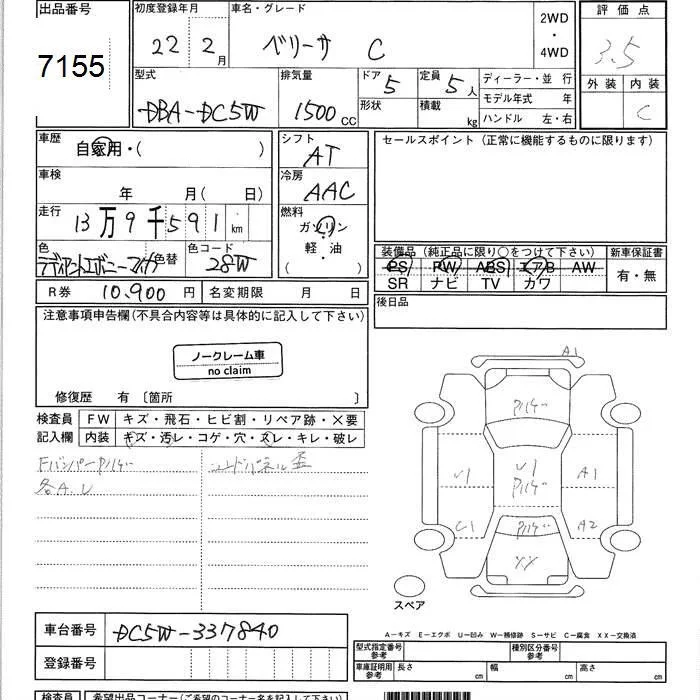 出品番号
7155
初度登録年月
22 2月
車名・グレード
ベリーサ C
2WD
・
4WD
評価点
3.5
外装 内装
C
型式
DBA-DC5W
排気量
1500 CC
ドア 5
形状
定員 5人
積載 kg
ディーラー・並 行
モデル年式 年
ハンドル 左・右
車歴
自家用・( )
シフト
AT
セールスポイント (正常に機能するものに限ります)
車検
年 月( 日)
冷房
AAC
走行
13万9千591 km
燃料
ガソリン
軽・油
( ・ )
色
ラディアントエボニーマイカ
色替
色コード
28W
装備品 (純正品に限り○をつけて下さい)
PS PW ABS エアB AW
SR ナビ TV カワ
新車保証書
有・無
R券 10,900円
名変期限 月 日
後日品
注意事項申告欄(不具合内容等は具体的に記入して下さい)
ノークレーム車
no claim
修復歴 有 〔箇所 〕
検査員
記入欄
FW キズ・飛石・ヒビ割・リペア跡・×要
内装 キズ・汚レ・コゲ・穴・スレ・キレ・破レ
FバンパーPハゲ
各A.U
コアドパネル歪
A1
Pハゲ
U1
U1
Pハゲ
A1
C1
Pハゲ
A2
XX
スペア
車台番号
DC5W-337840
登録番号
A－キズ E－エクボ U－凹み W－補修跡 S－サビ C－腐食 XX－交換済
型式指定番号
参考
種別区分番号
参考
車庫証明用
参考
長さ cm
幅 cm
高さ cm
検査員
希望出品コーナー(ご希望のコーナー名を記入して下さい)